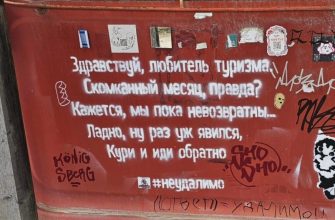 Здравствуй, любитель туризма.
Скомканный месяц, правда?
Кажется, мы пока невозвратны...
Ладно, ну раз уж явился,
Кури и иди обратно
#неудалимо
KÖNIG
SBERG